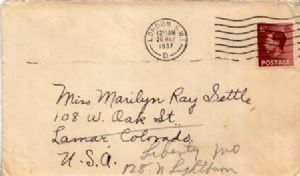 LONDON S.W.1
12 15 AM
26 MAY
1937
D
POSTAGE
Miss Marilyn Ray Settle,
108 W. Oak St.,
Lamar Colorado,
U.S.A.
Liberty Mo
128 N Lightburn